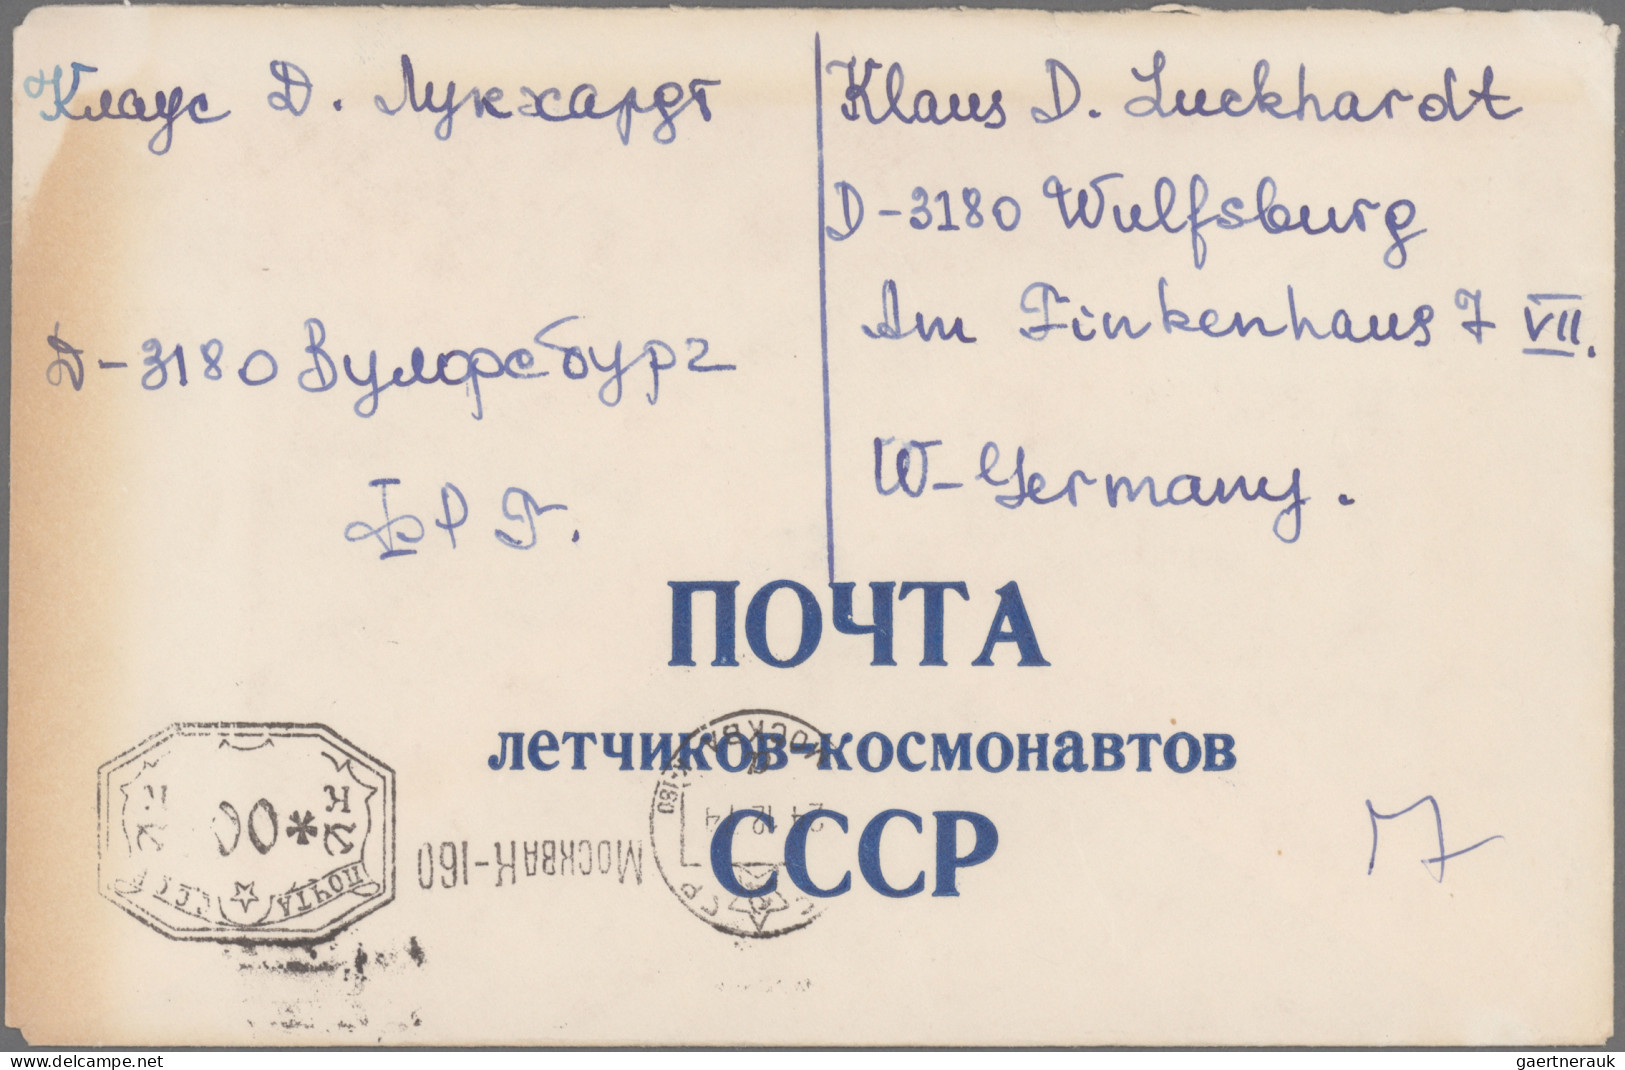 Клаус Д. Лукхардт
Д-3180 Вулфсбург
ФРГ.
Klaus D. Luckhardt
D-3180 Wulfsburg
Am Finkenhaus 7 VII.
W-Germany.
ПОЧТА
летчиков-космонавтов
СССР
МОСКВА К-160
МОСКВА
*00 К
ПОЧТА СССР
www.delcampe.net
gaertnerauk